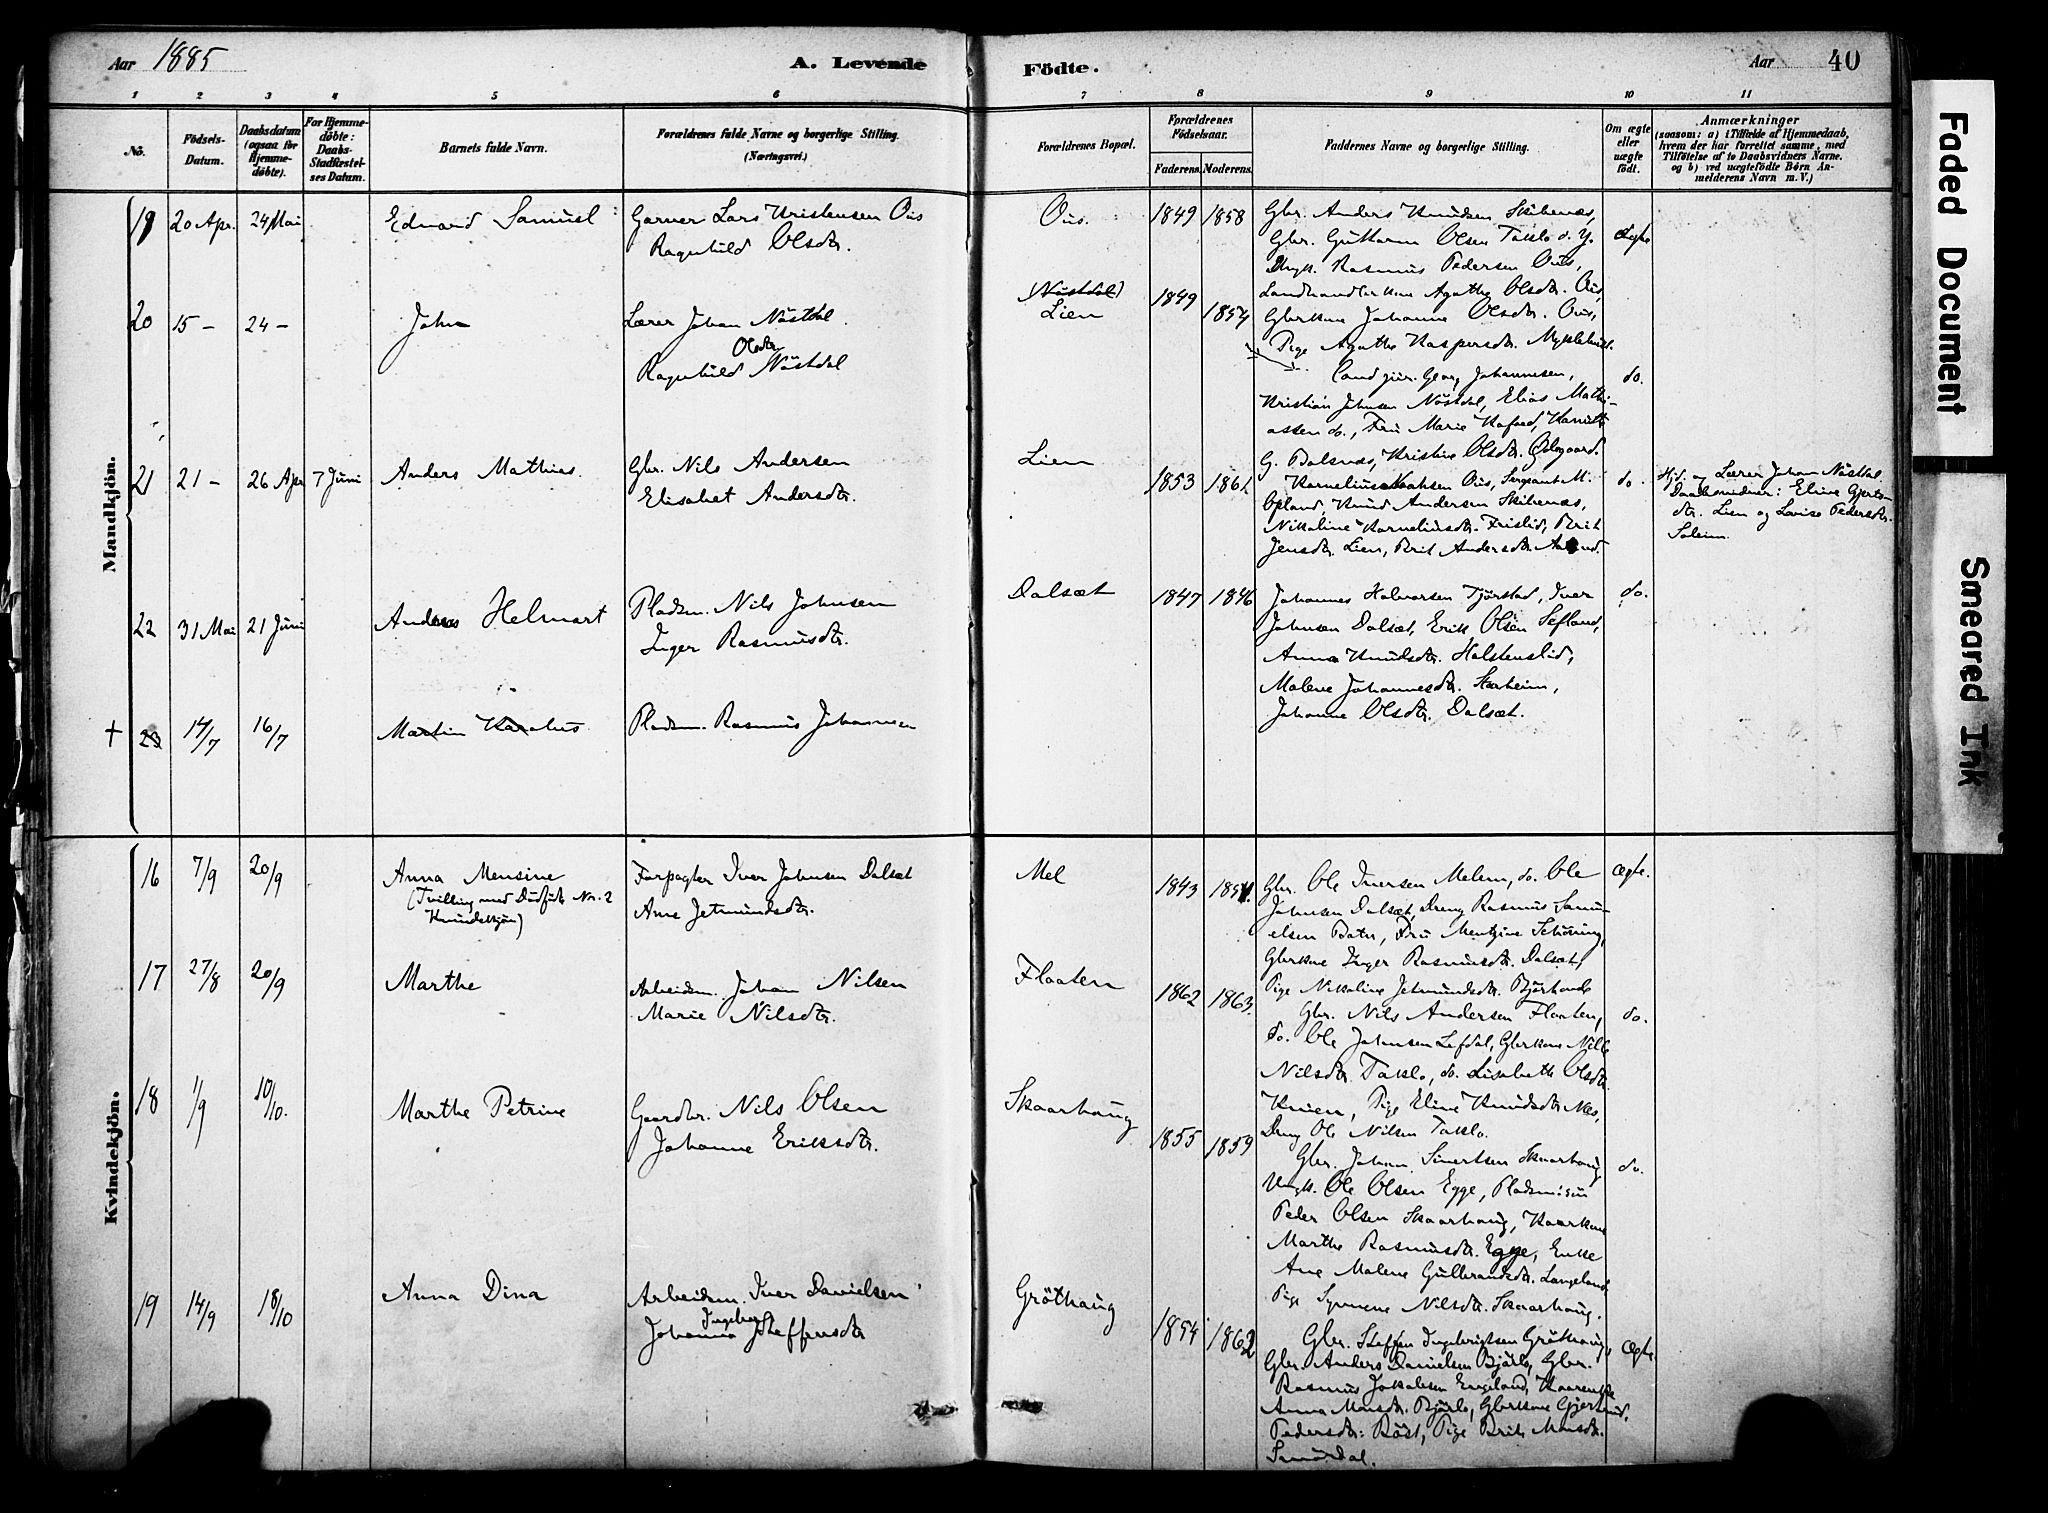 Aar 1885
A. Levende
Födte.
Aar 40
1 2 3 4 5 6 7 8 9 10 11
No.
Födsels-Datum.
Daabsdatum (ogsaa for Hjemme-döbte).
For Hjemme-döbte: Daabs-Stadfæstel-ses Datum.
Barnets fulde Navn.
Forældrenes fulde Navne og borgerlige Stilling. (Næringsvei.)
Forældrenes Bopæl.
Forældrenes Födselsaar.
Faderens. Moderens.
Faddernes Navne og borgerlige Stilling.
Om ægte eller uægte födt.
Anmærkninger
(saasom: a) i Tilfælde af Hjemmedaab, hvem der har forrettet samme, med Tilföielse af to Daabsvidners Navne. og b) ved uægtefödte Börn Anmelderens Navn m. V.)
Mandkjön.
19 20 Apr. 24 Mai Edvard Samuel Garver Lars Kristensen Ous
Ragnhild Olsdtr.
Ous. 1849 1858
Gbr. Anders Knudsen Skibenæs,
Gbr. Guttorm Olsen Taklo d. y.
Ungk. Rasmus Pedersen Ous,
Landhandlerkone Agathe Olsdtr. Ous,
Gbrkone Johanne Olsdtr. Ous,
Pige Agathe Kaspersdtr. Myklebust.
Ægte
20 15 - 24 - John Lærer Johan Nöstdal
Ragnhild Olsdtr Nöstdal
(Nöstdal)
Lien 1849 1854
Cand jur. Georg Johannesen,
Kristian Johnsen Nöstdal, Elias Mathi-
assen do., Fru Marie Kafoed,
G. Balsnæs, Kristine Olsdtr. Ödegaard.
do.
21 21 - 26 Apr 7 Juni Anders Mathias. Gbr. Nils Andersen
Elisabet Andersdtr.
Lien 1853 1861
Kornelius Ous, Sergeant M.
Opland, Knud Andersen Skibenæs,
Nikoline Korneliusdtr. Frislid, Brit
Jensdtr. Lien, Brit Andersdtr.
do.
Hjd. og Lærer Johan Nöstdal
Daabsvidner: Eline Gjerts-
dtr. Lien og Lovise Pedersdtr.
Soleim.
22 31 Mai 21 Juni Andreas Helmart Pladsm. Nils Johnsen
Inger Rasmusdtr.
Dalsæt 1847 1846
Johannes Halvorsen Tjörstad, Iver
Johnsen Dalsæt, Erik Olsen Sefland,
Anna Knudsdtr. Holstenslid,
Malene Johannesdtr. Skarheim,
Johanne Olsdtr. Dalsæt.
do.
† 23 14/7 16/7 Martin Karolus Pladsm. Rasmus Johannesen
Kvindekjön.
16 7/9 20/9 Anna Mensine
(Tvilling med Dödfödt No. 2
Kvindekjön)
Forpagter Iver Johnsen Dalsæt
Ane Jetmundsdtr.
Mel 1843 1851.
Gbr. Ole Iversen Melem, do. Ole
Johnsen Dalsæt, Dreng Rasmus Samu-
elsen, Fru Mentzine Schöning,
Gbrkone Inger Rasmusdtr. Dalsæt,
Pige Nikoline Jetmundsdtr. Björhovde
Ægte.
17 27/8 20/9 Marthe Arbeidsm. Johan Nilsen
Marie Nilsdtr.
Flaaten 1862 1863.
Gbr. Nils Andersen Flaaten,
do. Ole Johnsen Lefdal, Gbrkone Nille
Nilsdtr. Taklo, do. Lisabeth Olsdtr.
Knien, Pige Eline Knudsdtr. Nes,
Dreng Ole Nilsen Taklo.
do.
18 1/9 10/10. Marthe Petrine Gaardbr. Nils Olsen
Johanne Eriksdtr.
Skaarhaug 1855 1859
Gbr. Johan Sivertsen Skaarhaug
Ungk. Ole Olsen Egge, Pladsm.sön
Peder Olsen Skaarhaug, Kaarkone
Marthe Rasmusdtr. Egge, Enke
Ane Malene Gulbrandsdtr. Langeland
Pige Synneve Nilsdtr. Skaarhaug.
do.
19 14/9 18/10 Anna Dina Arbeidsm. Iver Danielsen
Johanna Ingeborg Steffensdtr
Gröthaug 1854 1862
Gbr. Steffen Ingebrigtsen Gröthaug,
Gbr. Anders Danielsen Bjørlo, Gbr.
Rasmus Jakobsen Engeland, Kaarenke
Anna Monsdtr. Bjørlo, Gbrkone Gjertrud
Pedersdtr: Röst, Pige Brite Monsdtr.
Smördal.
Ægte.
Faded Document
Smeared Ink